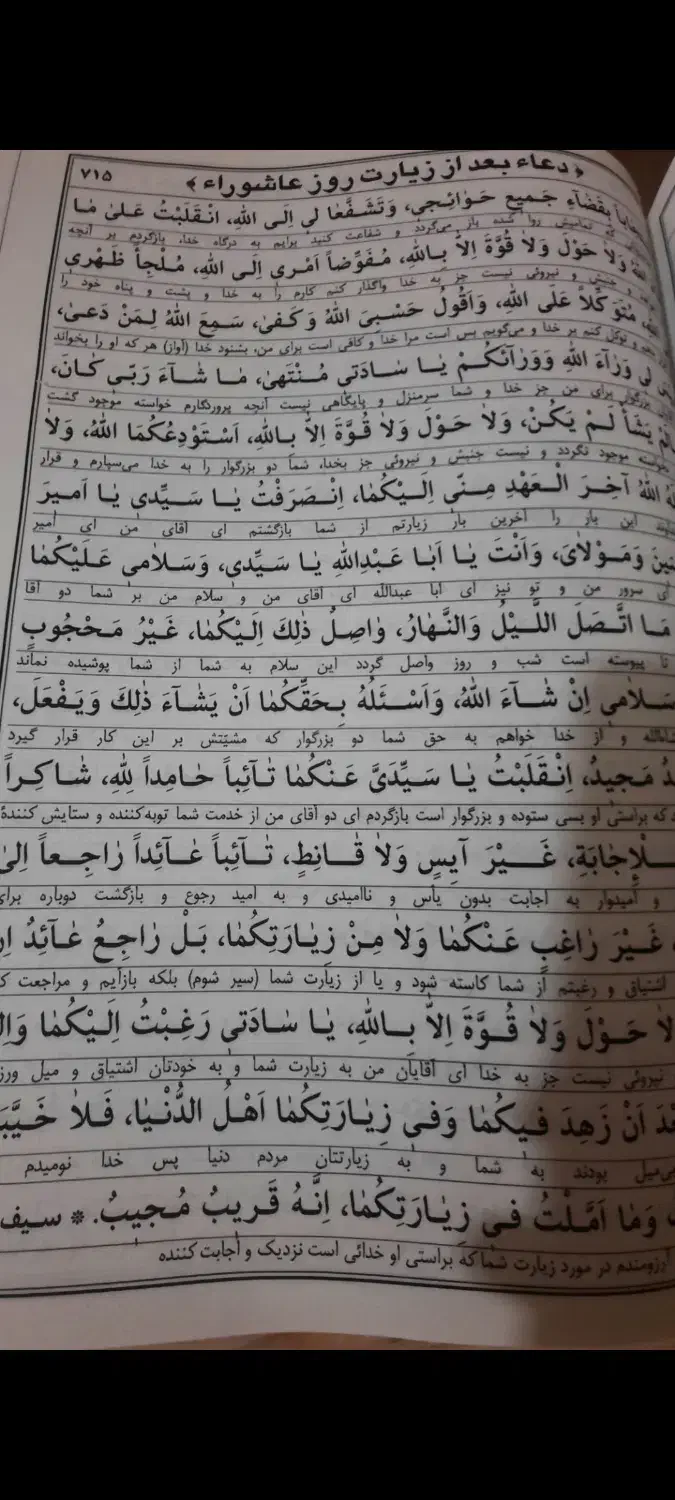 ﴿ دعاء بعد از زیارت روز عاشوراء ﴾ ۷۱۵
بِقَضٰآءِ جَمیعِ حَوٰائِجی، وَتَشَفَّعٰا لی اِلَی اللهِ، انْقَلَبْتُ عَلیٰ مٰا
که تمامیش روا شده باز می‌گردد و شفاعت کنید برایم به درگاه خدا، بازگردم بر آنچه
اللهُ وَلاٰ حَوْلَ وَلاٰ قُوَّةَ اِلاّٰ بِاللهِ، مُفَوِّضاً اَمْری اِلَی اللهِ، مُلْجِأً ظَهْری
و جنبش و نیروئی نیست جز به خدا واگذار کنم کارم را به خدا و پشت و پناه خود را
مُتَوَکِّلاً عَلَی اللهِ، وَاَقُولُ حَسْبِیَ اللهُ وَکَفیٰ، سَمِعَ اللهُ لِمَنْ دَعیٰ،
و توکل کنم بر خدا و می‌گویم بس است مرا خدا و کافی است برای من، بشنود خدا (آواز) هر که او را بخواند
لی وَرٰآءَ اللهِ وَوَرٰآئَکُمْ یٰا سٰادَتی مُنْتَهیٰ، مٰا شٰآءَ رَبّی کٰانَ،
برای من جز خدا و شما سرمنزل و پایگاهی نیست آنچه پروردگارم خواسته موجود گشت
یَشَأْ لَمْ یَکُنْ، وَلاٰ حَوْلَ وَلاٰ قُوَّةَ اِلاّٰ بِاللهِ، اَسْتَوْدِعُکُمَا اللهَ، وَلاٰ
موجود نگردد و نیست جنبش و نیروئی جز بخدا، شما دو بزرگوار را به خدا می‌سپارم و قرار
اللهُ آخِرَ الْعَهْدِ مِنّی اِلَیْکُمٰا، اِنْصَرَفْتُ یٰا سَیِّدی یٰا اَمیرَ
این بار را آخرین بار زیارتم از شما بازگشتم ای آقای من ای امیر
وَمَوْلاٰیَ، وَاَنْتَ یٰا اَبٰا عَبْدِاللهِ یٰا سَیِّدی، وَسَلاٰمی عَلَیْکُمٰا
ای سرور من و تو نیز ای ابا عبدالله ای آقای من و سلام من بر شما دو آقا
مَا اتَّصَلَ اللَّیْلُ وَالنَّهٰارُ، وٰاصِلٌ ذٰلِکَ اِلَیْکُمٰا، غَیْرُ مَحْجُوبٍ
تا پیوسته است شب و روز واصل گردد این سلام به شما از شما پوشیده نماند
سَلاٰمی اِنْ شٰآءَ اللهُ، وَاَسْئَلُهُ بِحَقِّکُمٰا اَنْ یَشٰآءَ ذٰلِکَ وَیَفْعَلَ،
و از خدا خواهم به حق شما دو بزرگوار که مشیّتش بر این کار قرار گیرد
مَجیدٌ، اِنْقَلَبْتُ یٰا سَیِّدَیَّ عَنْکُمٰا تٰآئِباً حٰامِداً لِلّٰهِ، شٰاکِراً
که براستی او بسی ستوده و بزرگوار است بازگردم ای دو آقای من از خدمت شما توبه‌کننده و ستایش کنندهٔ
لِلْإِجٰابَةِ، غَیْرَ آیِسٍ وَلاٰ قٰانِطٍ، تٰآئِباً عٰآئِداً رٰاجِعاً اِلیٰ
و امیدوار به اجابت بدون یأس و ناامیدی و به امید رجوع و بازگشت دوباره برای
غَیْرَ رٰاغِبٍ عَنْکُمٰا وَلاٰ مِنْ زِیٰارَتِکُمٰا، بَلْ رٰاجِعٌ عٰآئِدٌ
اشتیاق و رغبتم از شما کاسته شود و یا از زیارت شما (سیر شوم) بلکه بازآیم و مراجعت
لاٰ حَوْلَ وَلاٰ قُوَّةَ اِلاّٰ بِاللهِ، یٰا سٰادَتی رَغِبْتُ اِلَیْکُمٰا
نیروئی نیست جز به خدا ای آقایان من به زیارت شما و به خودتان اشتیاق و میل
اَنْ زَهِدَ فیکُمٰا وَفی زِیٰارَتِکُمٰا اَهْلُ الدُّنْیٰا، فَلاٰ
بی‌میل بودند به شما و به زیارتتان مردم دنیا پس خدا نومیدم
وَمٰا اَمَّلْتُ فی زِیٰارَتِکُمٰا، اِنَّهُ قَریبٌ مُجیبٌ. * سیف
آرزومندم در مورد زیارت شما که براستی او خدائی است نزدیک و اجابت کننده